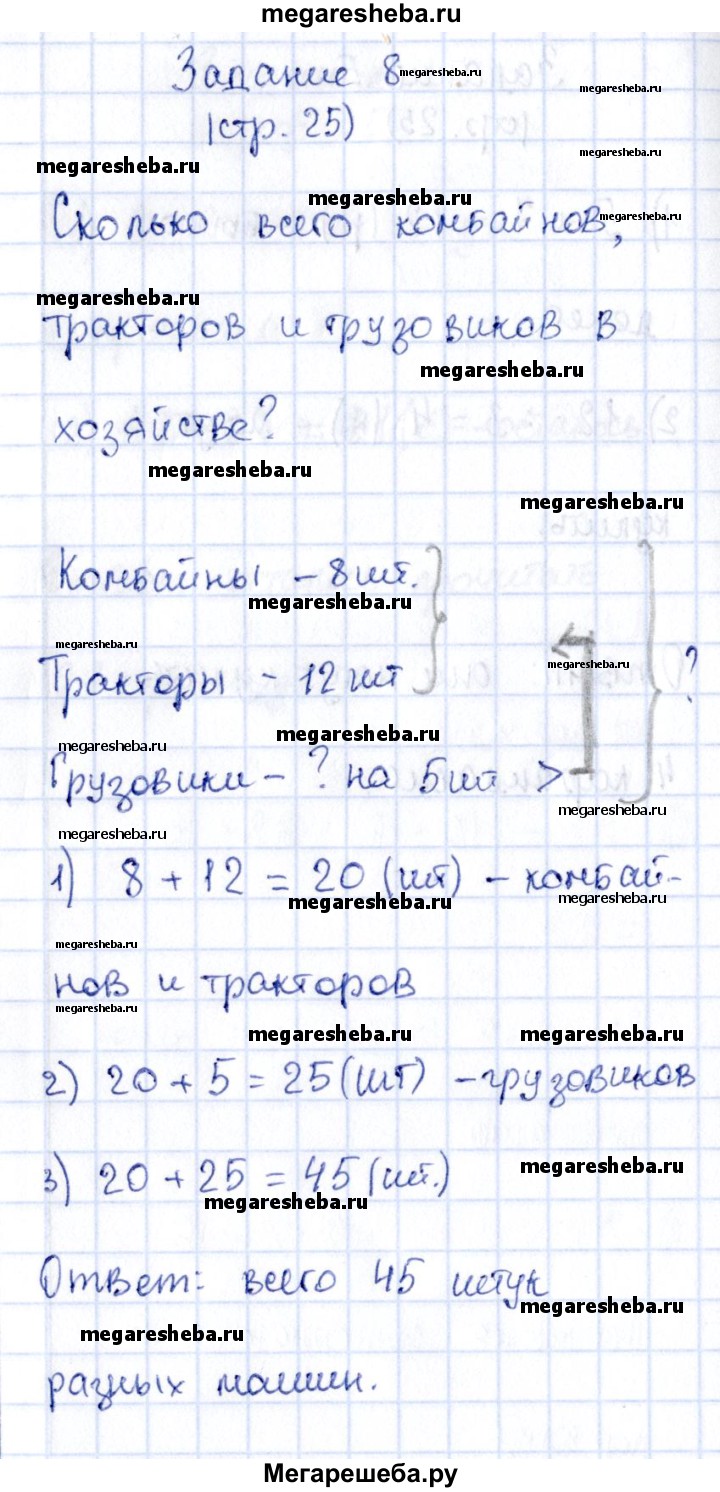 megaresheba.ru
Задание 8 megaresheba.ru
megaresheba.ru
(стр. 25)
megaresheba.ru
megaresheba.ru
megaresheba.ru
Сколько всего комбайнов, megaresheba.ru
megaresheba.ru
тракторов и грузовиков в
megaresheba.ru
хозяйстве?
megaresheba.ru
megaresheba.ru
Комбайны - 8 шт.
megaresheba.ru
megaresheba.ru
megaresheba.ru
Тракторы - 12 шт ?
megaresheba.ru
megaresheba.ru
Грузовики - ? на 5 шт >
megaresheba.ru
megaresheba.ru
1) 8 + 12 = 20 (шт) - комбай-
megaresheba.ru
megaresheba.ru
megaresheba.ru
нов и тракторов
megaresheba.ru
megaresheba.ru
megaresheba.ru
2) 20 + 5 = 25 (шт) - грузовиков
megaresheba.ru
3) 20 + 25 = 45 (шт.)
megaresheba.ru
Ответ: всего 45 штук
megaresheba.ru
megaresheba.ru
разных машин.
Мегарешеба.ру